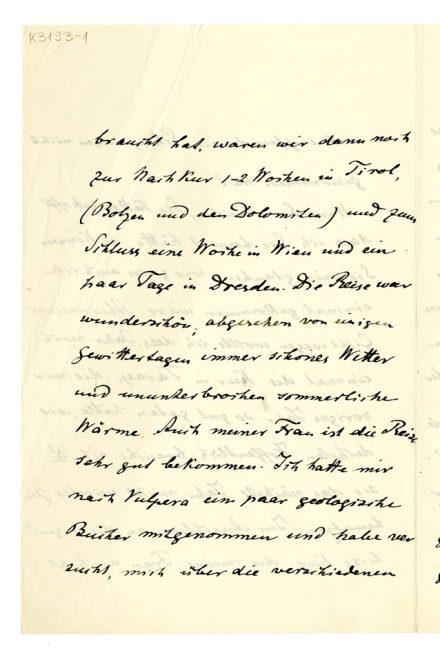 K3193-1
braucht hat, waren wir dann noch
zur Nachkur 1-2 Wochen in Tirol,
(Bozen und den Dolomiten) und zum
Schluss eine Woche in Wien und ein
paar Tage in Dresden. Die Reise war
wunderschön, abgesehen von einigen
Gewittertagen immer schönes Wetter
und ununterbrochen sommerliche
Wärme. Auch meiner Frau ist die Reise
sehr gut bekommen. Ich hatte mir
nach Vulpera ein paar geologische
Bücher mitgenommen und habe ver
sucht, mich über die verschiedenen